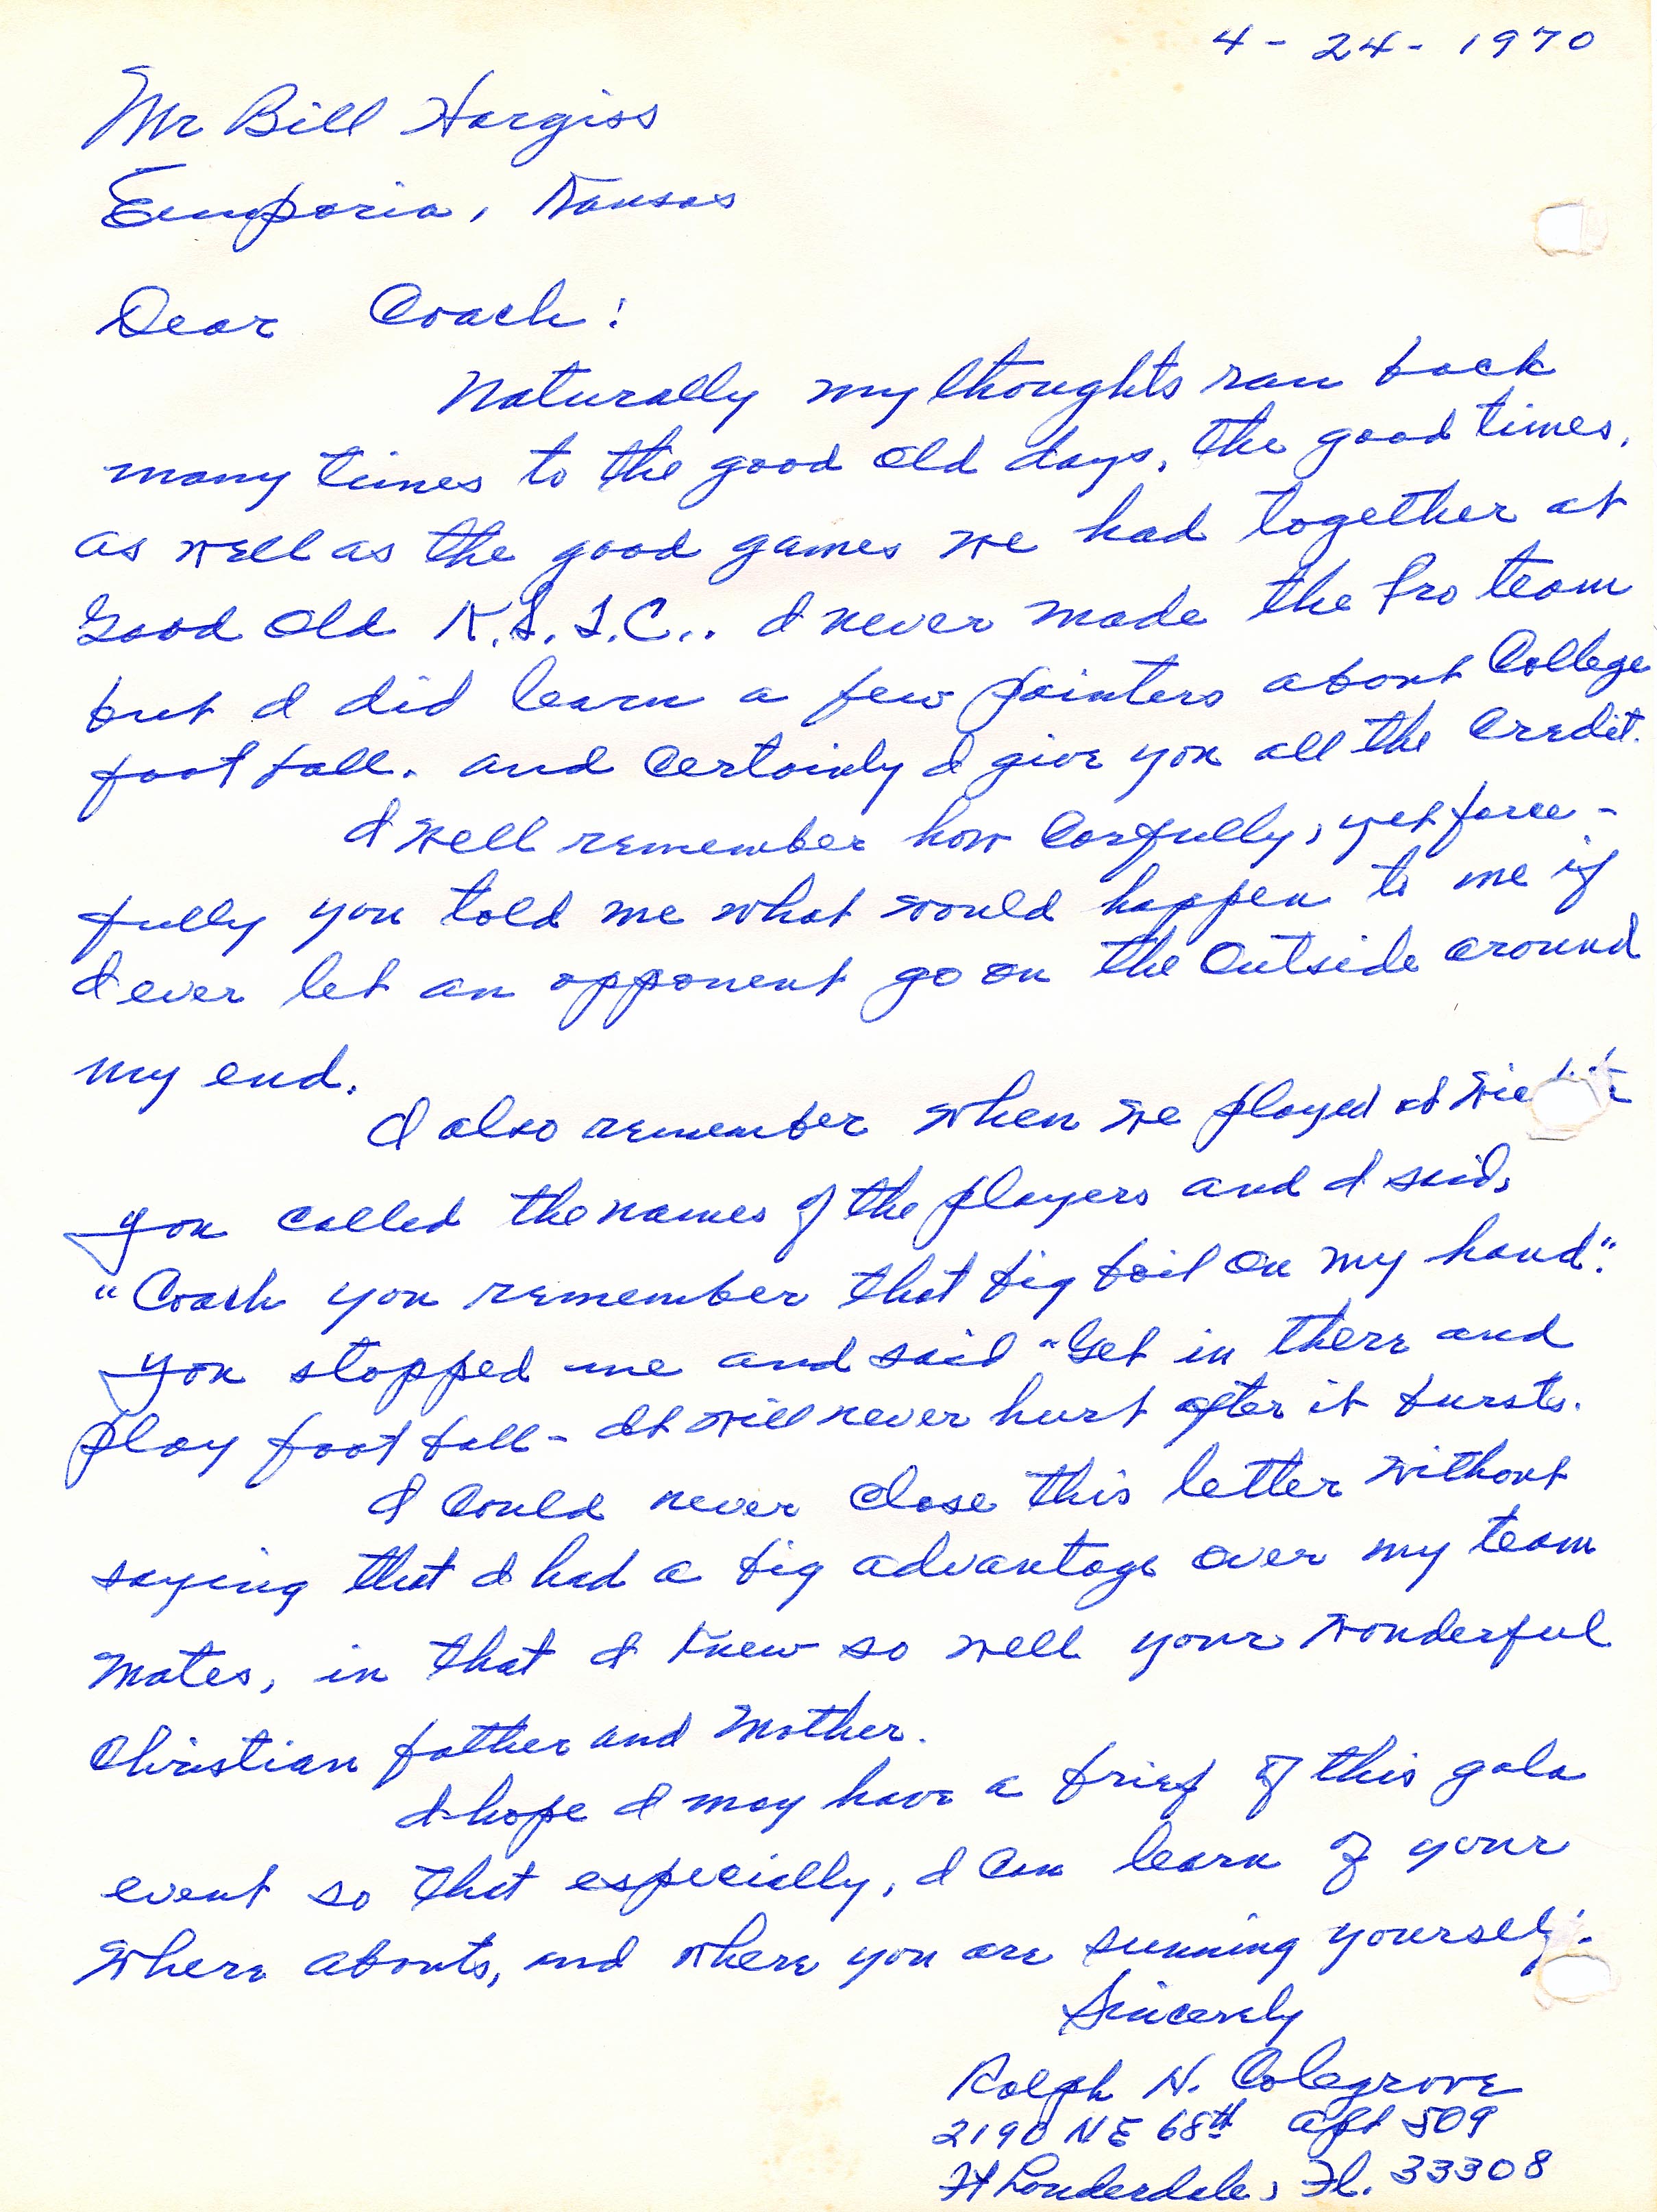 4 - 24 - 1970
Mr Bill Hargiss
Emporia, Kansas
Dear Coach:
Naturally my thoughts ran back
many times to the good old days, the good times,
as well as the good games we had together at
Good Old K.S.T.C.. I never made the Pro team
but I did learn a few pointers about College
foot ball. and Certainly I give you all the Credit.
I well remember how Carefully, yet force-
fully you told me what would happen to me if
I ever let an opponent go on the Outside around
my end.
I also remember when we played at
you called the names of the players and I said,
"Coach you remember that big boil On my hand".
you stopped me and said "Get in there and
play foot ball - It will never hurt after it bursts.
I Could never Close this letter without
saying that I had a big advantage over my team
Mates, in that I Knew so well your wonderful
Christian father and Mother.
I hope I may have a brief of this gala
event so that especially, I Can learn of your
where abouts, and where you are sunning yourself.
Sincerely
Ralph N. Colegrove
2190 NE 68th Apt 509
Ft Lauderdale, Fl. 33308